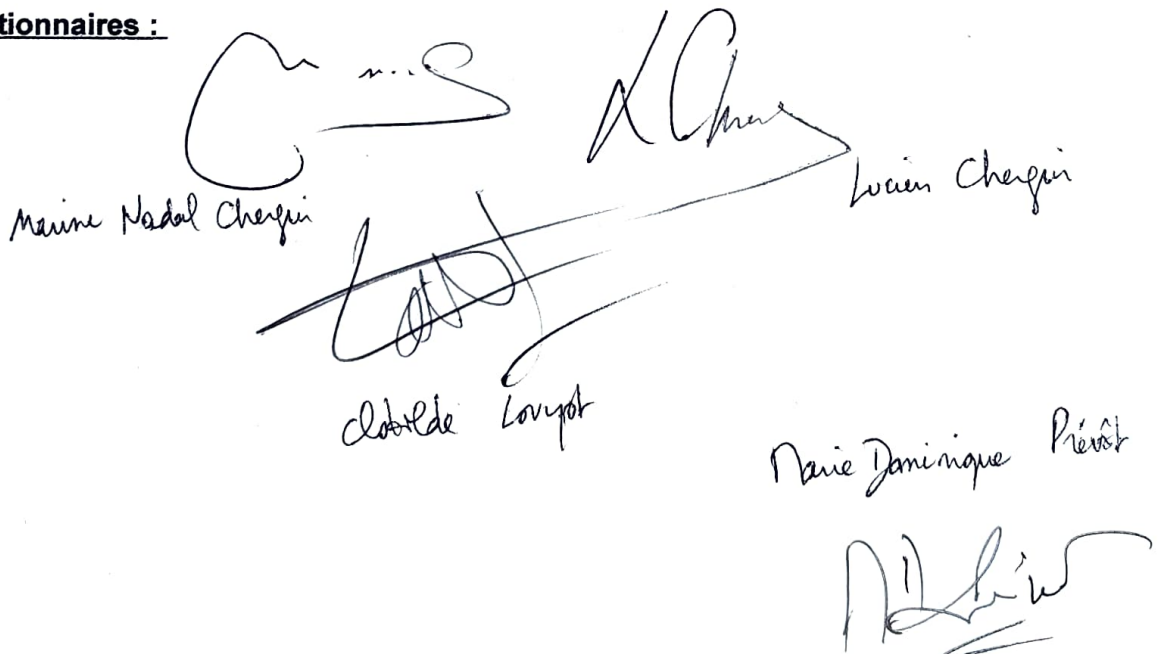 tionnaires :
Marine Nadal Chergui
Lucien Chergui
Clotilde Louyot
Marie Dominique Prévôt